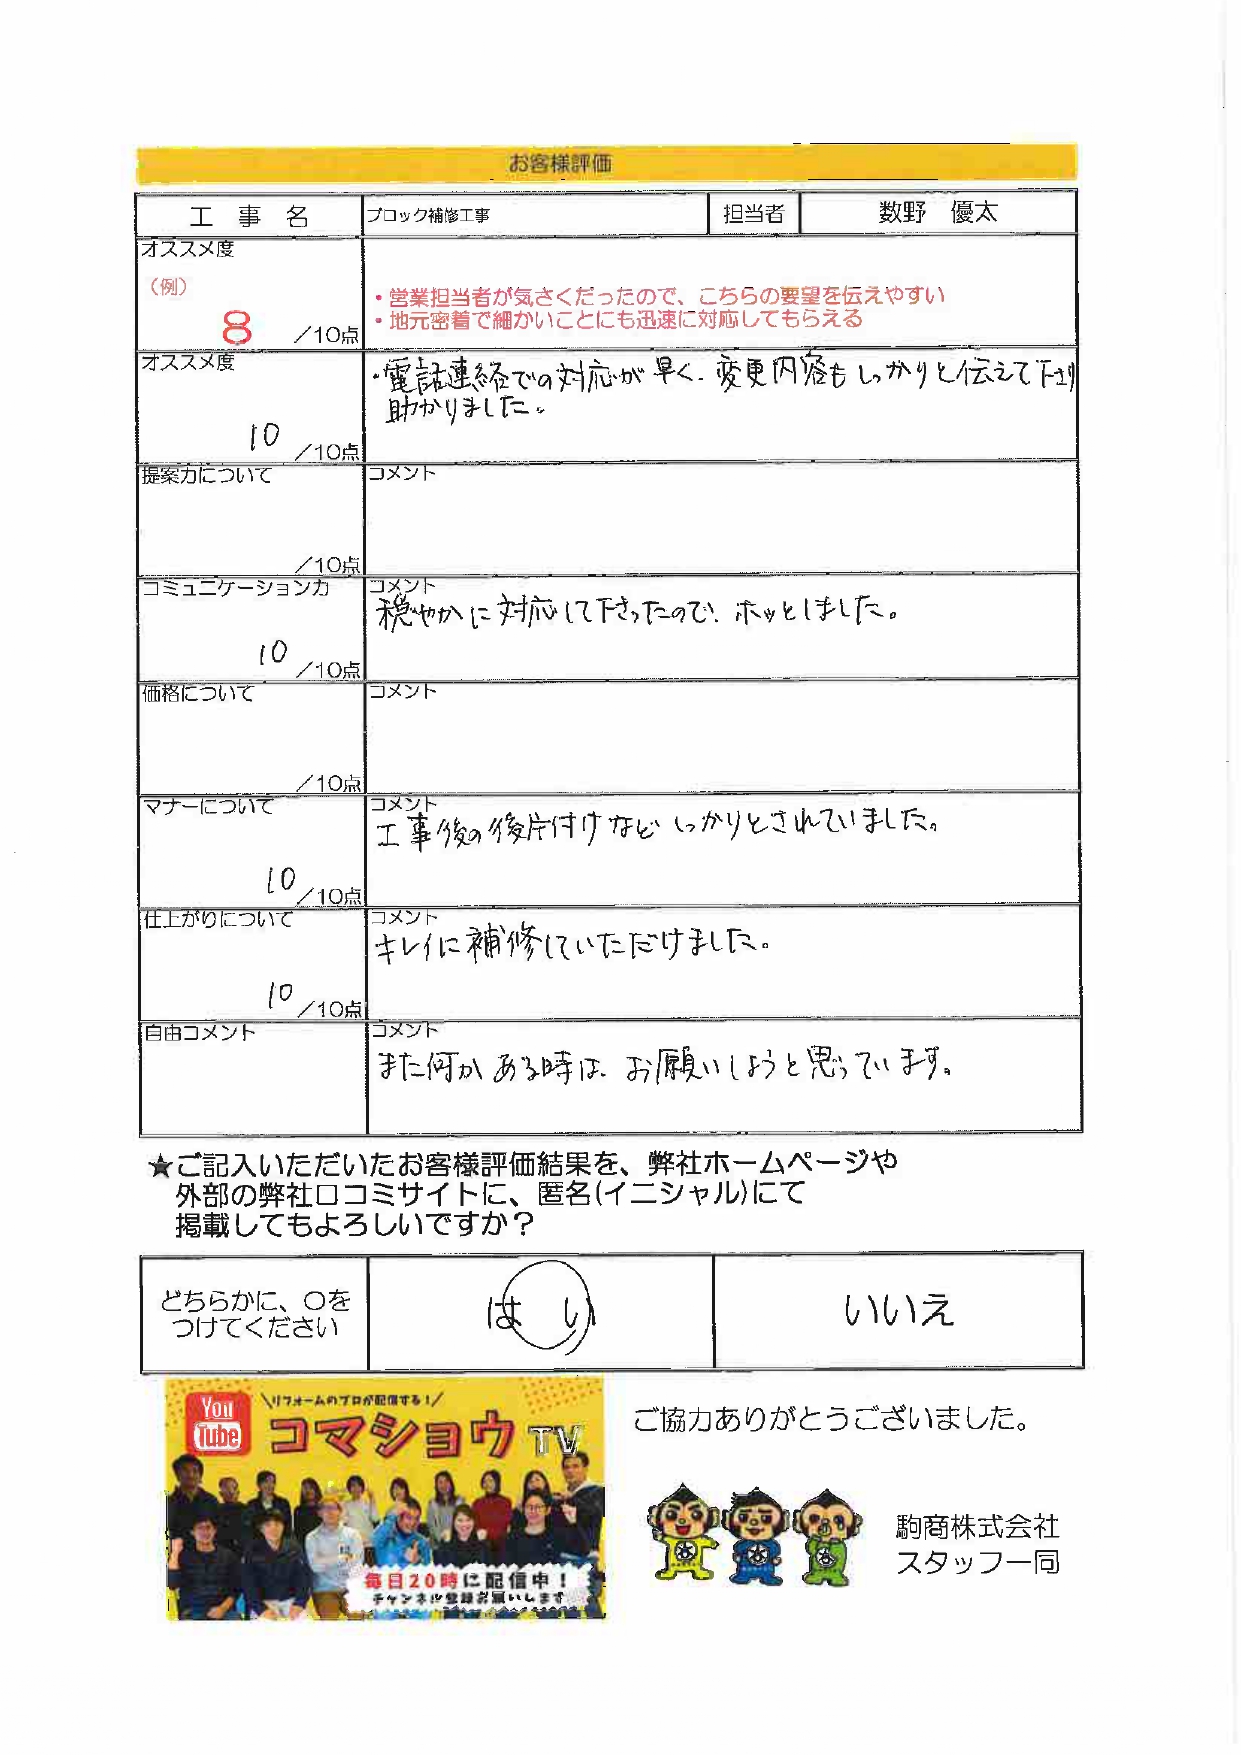 お客様評価
工事名 ブロック補修工事 担当者 数野 優太
オススメ度
(例)
8 /10点
・営業担当者が気さくだったので、こちらの要望を伝えやすい
・地元密着で細かいことにも迅速に対応してもらえる
オススメ度
10 /10点
・電話連絡での対応が早く、変更内容もしっかりと伝えて下さり
助かりました。
提案力について
/10点
コメント
コミュニケーション力
10 /10点
コメント
穏やかに対応して下さったので、ホッとしました。
価格について
/10点
コメント
マナーについて
10 /10点
コメント
工事後の後片付けなどしっかりとされていました。
仕上がりについて
10 /10点
コメント
キレイに補修していただけました。
自由コメント
コメント
また何かある時は、お願いしようと思っています。
★ご記入いただいたお客様評価結果を、弊社ホームページや
外部の弊社口コミサイトに、匿名(イニシャル)にて
掲載してもよろしいですか？
どちらかに、〇を
つけてください
はい
いいえ
You
Tube
\リフォームのプロが配信する！/
コマショウTV
毎日20時に配信中！
チャンネル登録お願いします
ご協力ありがとうございました。
駒商株式会社
スタッフ一同